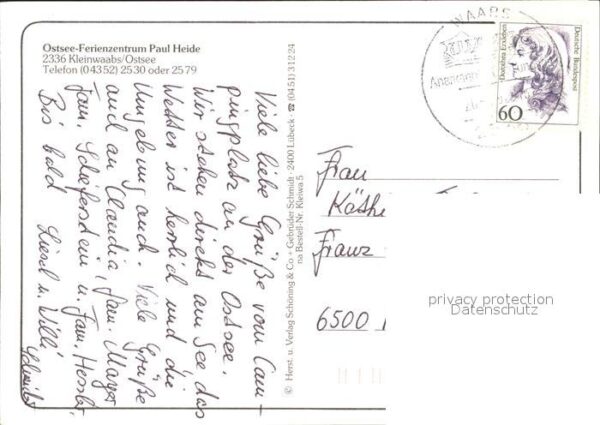 Ostsee-Ferienzentrum Paul Heide
2336 Kleinwaabs/Ostsee
Telefon (04352) 2530 oder 2579
Viele liebe Grüße vom Cam-
pingplatz an der Ostsee.
Wir stehen direkt am See das
Wetter ist herrlich und die
Umgebung auch. Viele Grüße
auch an Claudia, Fam. Mayer
Fam. Schieferstein u. Fam. Hessler.
Bis bald Liesel u. Willi
© Herst. u. Verlag Schöning & Co + Gebrüder Schmidt · 2400 Lübeck · ☎ (0451) 31224
na Bestell-Nr. Kleiwa 5
WAABS
Dorothea Erxleben
Deutsche Bundespost
60
Frau
Käthe
Franz
6500
privacy protection
Datenschutz